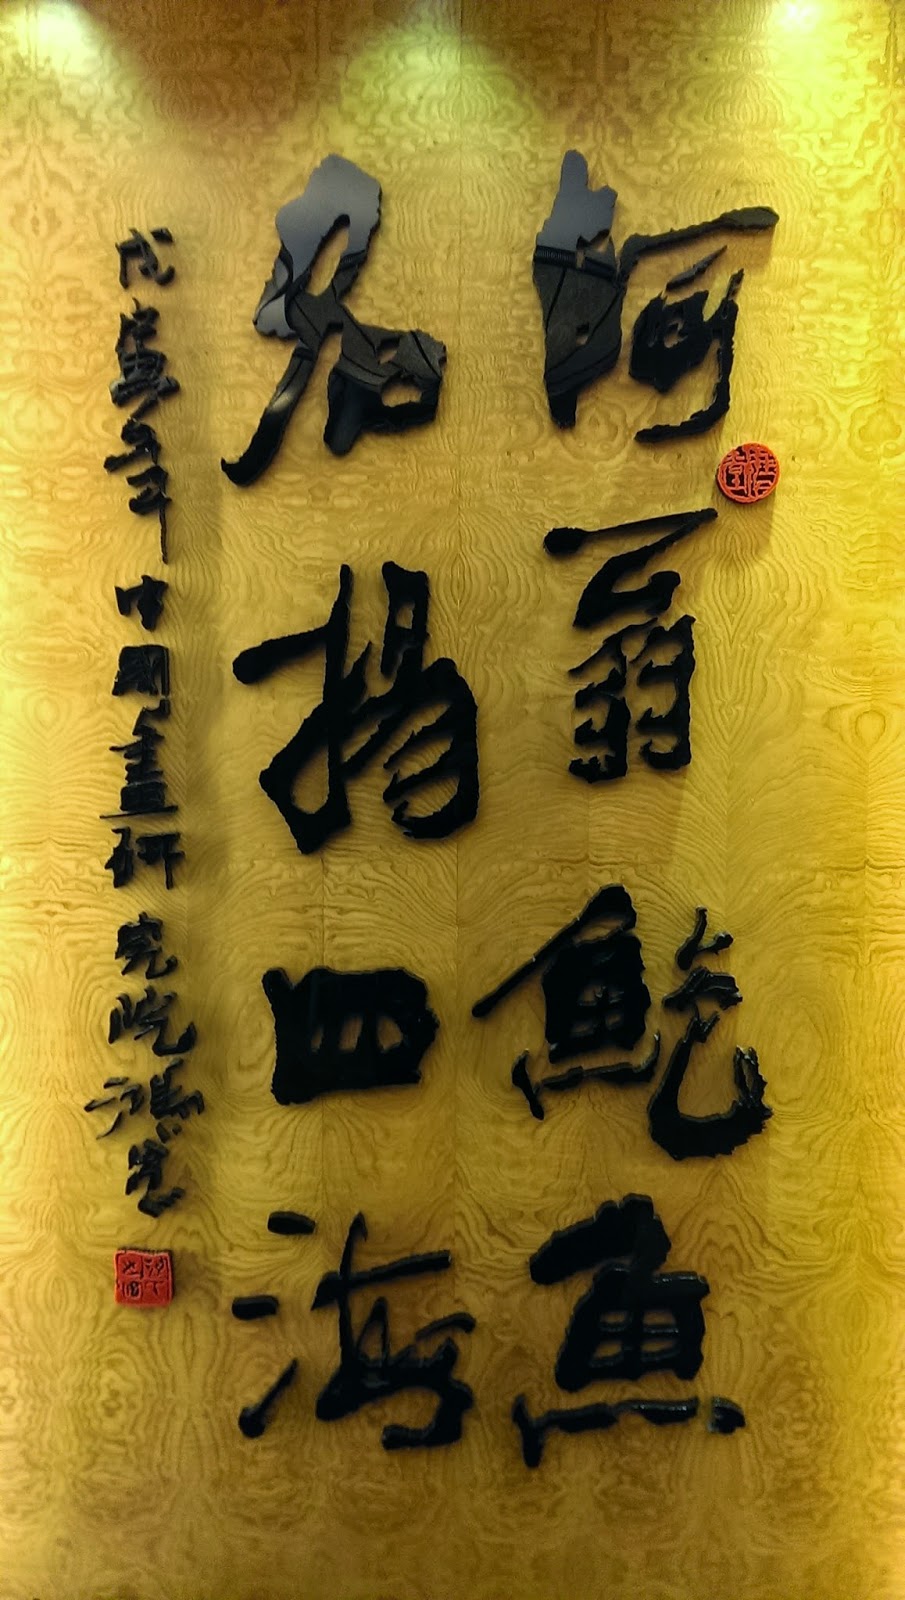 阿翁鮑魚
名揚四海
戊寅年中國畫研究院馮